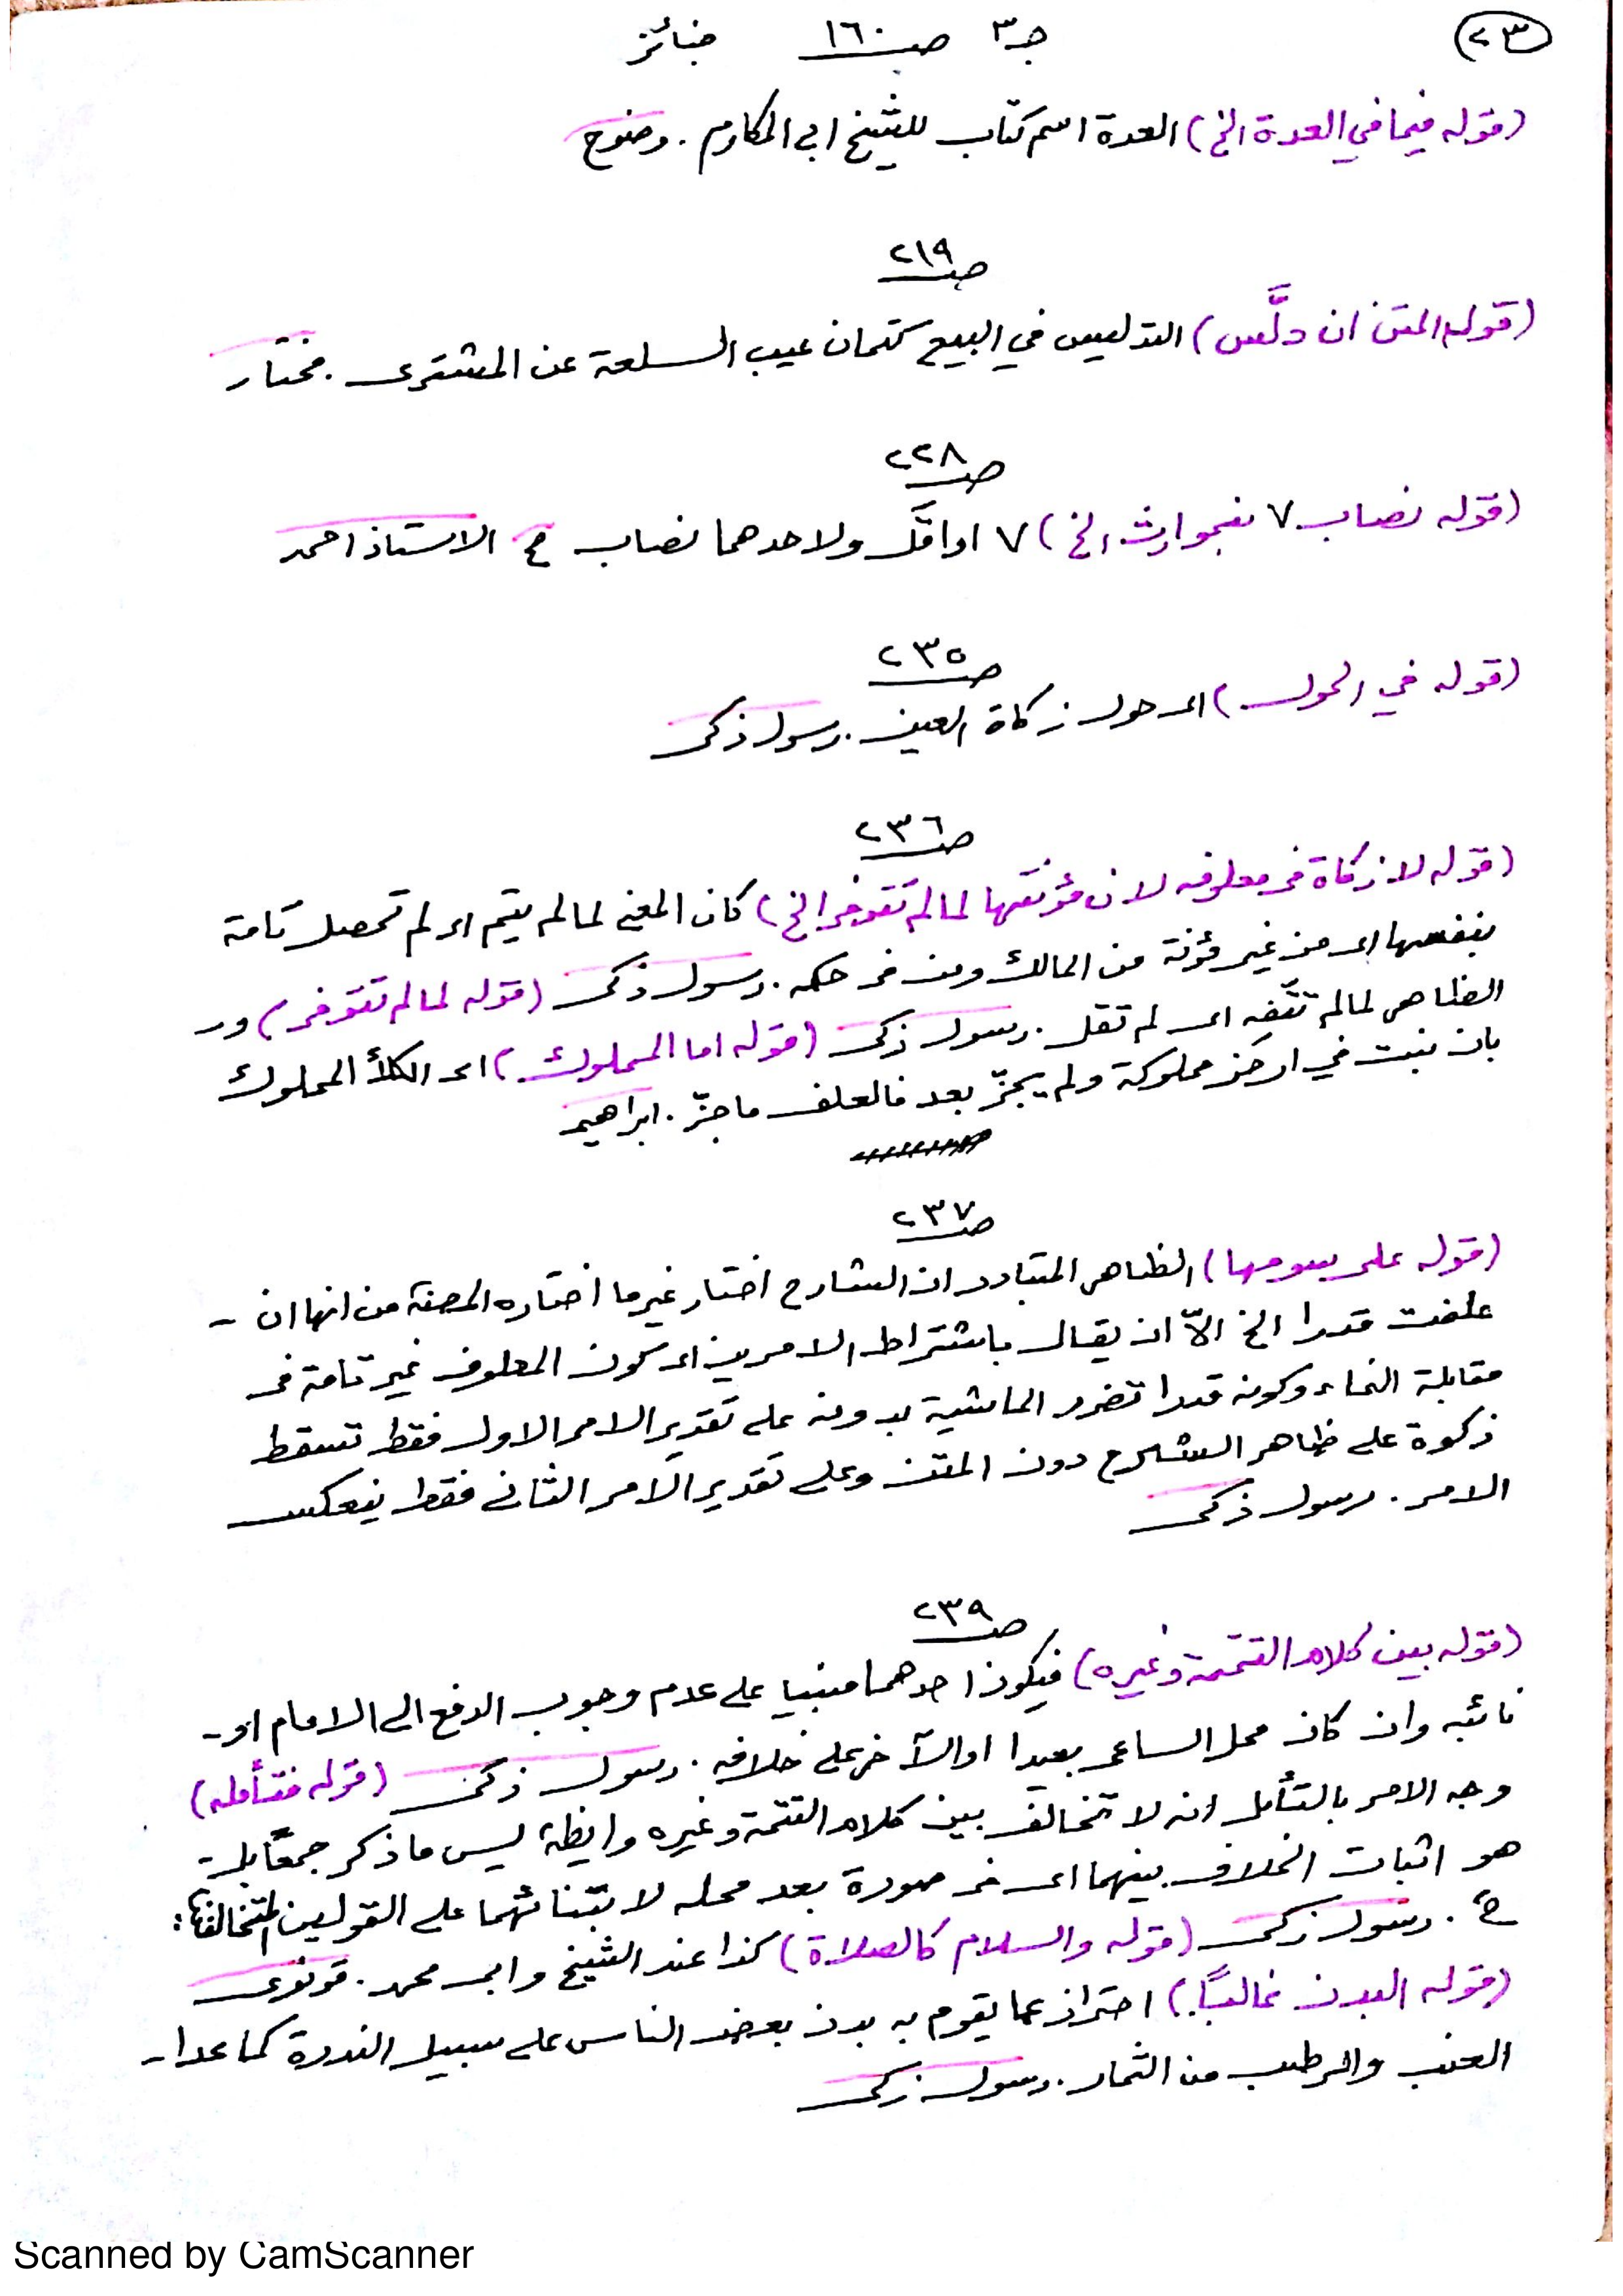 ٢٣
جـ٣ صـ١٦٠ جنائز
(قوله فيما في العدة الخ) العدة اسم كتاب للشيخ ابي المكارم . وضوح
صـ٢١٩
(قوله المتن ان دلَّس) التدليس في البيع كتمان عيب السلعة عن المشترى . مختار
صـ٢٢٨
(قوله نصاب ٧ فبجوارث الخ) ٧ اواقلَّ ولاحدهما نصاب ح الاستاذ احمد
صـ٢٣٥
(قوله في الحول) اى حول زكاة العين . رسول ذكى
صـ٢٣٦
(قوله لا زكاة فى معلوفه لان مؤنتها لما لم تتوفر الخ) كان المعنى لما لم يتم اى لم تحصل تامة
بنفسها اى من غير مؤنة من المالك ومن فى حكمه . رسول ذكى (قوله لما لم تتوفر) و
الظاهر لما لم تتَّفه اى لم تقل . رسول ذكى (قوله اما المملوك) اى الكلأ المملوك
بان نبت في ارض مملوكة ولم يجزّ بعد فالعلف ما جزّ . ابراهيم
صـ٢٣٧
(قوله على سومها) الظاهر المتبادر ان الشارح اختار غير ما اختاره المصنف من انها ان -
علفت قدرا الخ الاّ ان يقال باشتراط الامرين اى كون المعلوف غير تامة فى
مقابلة النماء وكونه قدرا تضرر الماشية بدونه على تقدير الامر الاول فقط تسقط
ذكوة على ظاهر الشرح دون المتن وعلى تقدير الامر الثانى فقط ينعكس
الامر . رسول ذكى
صـ٢٣٩
(قوله بين كلام التتمة وغيره) فيكون احدهما مبنيا على عدم وجوب الدفع الى الامام او -
نائبه وان كان محل الساعى بعيدا اوالآخر على خلافه . رسول زكى (قوله فتأمله)
وجه الامر بالتأمل انه لا تخالف بين كلام التتمة وغيره وايظا ليس ما ذكر جمعًا بل -
هو اثبات الخلاف بينهما اى فى صورة بعد محله لابتنائهما على القولين المتخالفين
ح . رسول زكى (قوله والسلام كالصلاة) كذا عند الشيخ وابى محمد . قونوى
(قوله البدن غالبًا) احتراز عما يقوم به بدن بعض الناس على سبيل الندرة كما عدا -
العنب والرطب من الثمار . رسول زكى
Scanned by CamScanner